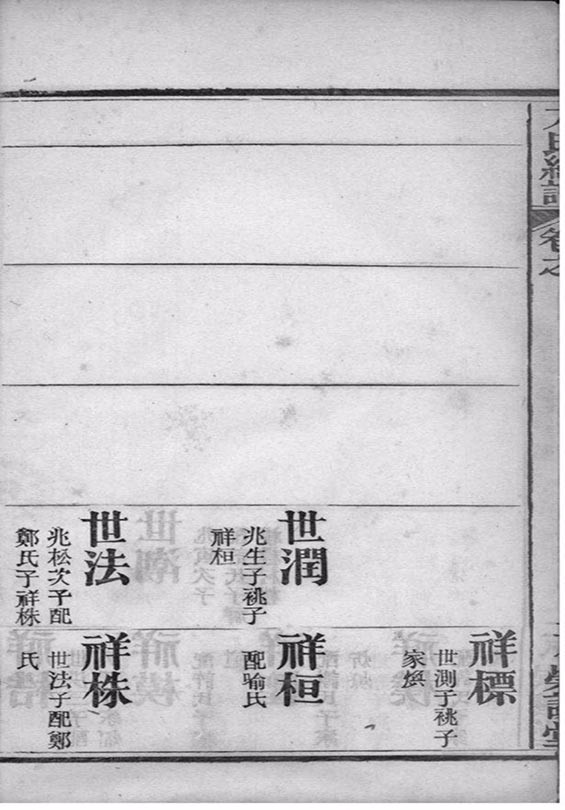 卷之
世潤
兆生子祧子
祥桓
世法
兆松次子配
鄭氏子祥株
祥標
世測子祧子
家
祥桓
配喻氏
祥株
世法子配鄭
氏